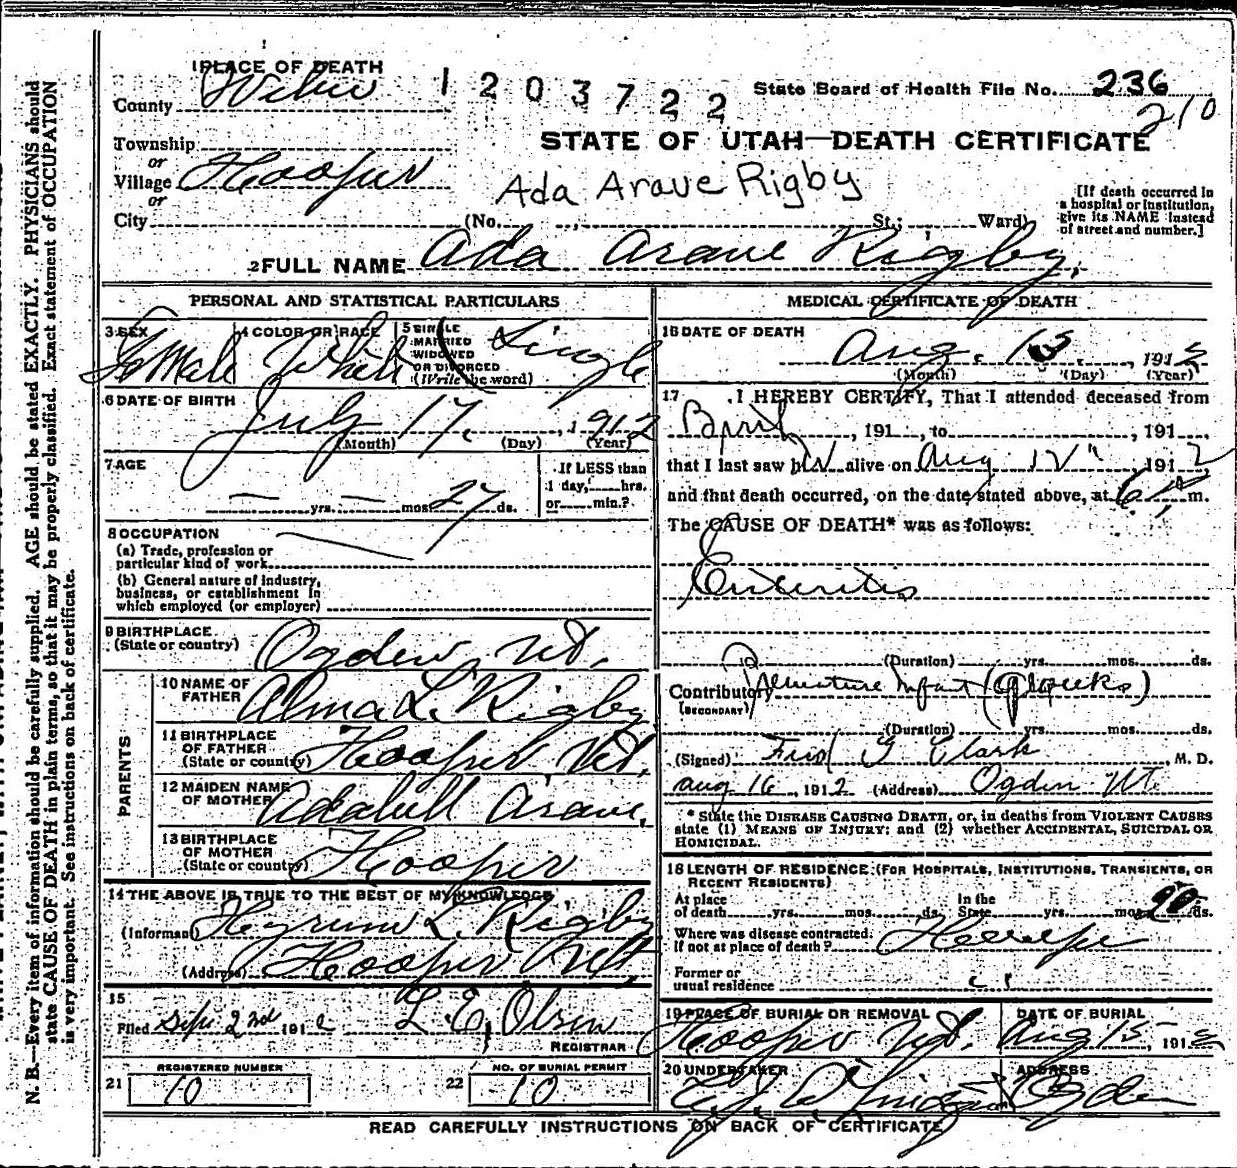 1 PLACE OF DEATH
County Weber
1203722
State Board of Health File No. 236
210
Township
or
Village Hooper
or
City
STATE OF UTAH—DEATH CERTIFICATE
Ada Arave Rigby
(No. St.; Ward)
[If death occurred in
a hospital or institution,
give its NAME instead
of street and number.]
2 FULL NAME Ada Arave Rigby.
PERSONAL AND STATISTICAL PARTICULARS
3 SEX Female
4 COLOR OR RACE White
5 SINGLE
MARRIED
WIDOWED
OR DIVORCED
(Write the word) Single
6 DATE OF BIRTH
July 17, 1912
(Month) (Day) (Year)
7 AGE
— yrs. — mos. 27 ds.
If LESS than
1 day, hrs.
or min.?
8 OCCUPATION
(a) Trade, profession or
particular kind of work
(b) General nature of industry,
business, or establishment in
which employed (or employer)
9 BIRTHPLACE
(State or country) Ogden, Ut.
PARENTS
10 NAME OF
FATHER Alma L. Rigby
11 BIRTHPLACE
OF FATHER
(State or country) Hooper Ut.
12 MAIDEN NAME
OF MOTHER Adabell Arave.
13 BIRTHPLACE
OF MOTHER
(State or country) Hooper
14 THE ABOVE IS TRUE TO THE BEST OF MY KNOWLEDGE
(Informant) Hyrum L. Rigby
(Address) Hooper Ut.
15
Filed Sept 2nd 1912 L. E. Olsen
REGISTRAR
21 REGISTERED NUMBER
10
22 NO. OF BURIAL PERMIT
10
MEDICAL CERTIFICATE OF DEATH
16 DATE OF DEATH
Aug. 13, 1912
(Month) (Day) (Year)
17 I HEREBY CERTIFY, That I attended deceased from
, 191 , to , 191 ,
that I last saw h alive on Aug 12", 1912
and that death occurred, on the date stated above, at 6 m.
The CAUSE OF DEATH* was as follows:
Enteritis
(Duration) yrs. mos. ds.
Contributory Premature Infant
(SECONDARY)
(Duration) yrs. mos. ds.
(Signed) Fred G. Clark, M. D.
Aug 16, 1912 (Address) Ogden Ut.
* State the DISEASE CAUSING DEATH, or, in deaths from VIOLENT CAUSES
state (1) MEANS OF INJURY; and (2) whether ACCIDENTAL, SUICIDAL OR
HOMICIDAL.
18 LENGTH OF RESIDENCE (FOR HOSPITALS, INSTITUTIONS, TRANSIENTS, OR
RECENT RESIDENTS)
At place
of death yrs. mos. ds.
In the
State yrs. mos. ds.
Where was disease contracted,
if not at place of death? Hooper
Former or
usual residence
19 PLACE OF BURIAL OR REMOVAL
Hooper Ut.
DATE OF BURIAL
Aug 15, 1912
20 UNDERTAKER
ADDRESS
Ogden
READ CAREFULLY INSTRUCTIONS ON BACK OF CERTIFICATE
N. B.—Every item of information should be carefully supplied. AGE should be stated EXACTLY. PHYSICIANS should
state CAUSE OF DEATH in plain terms, so that it may be properly classified. Exact statement of OCCUPATION
is very important. See instructions on back of certificate.